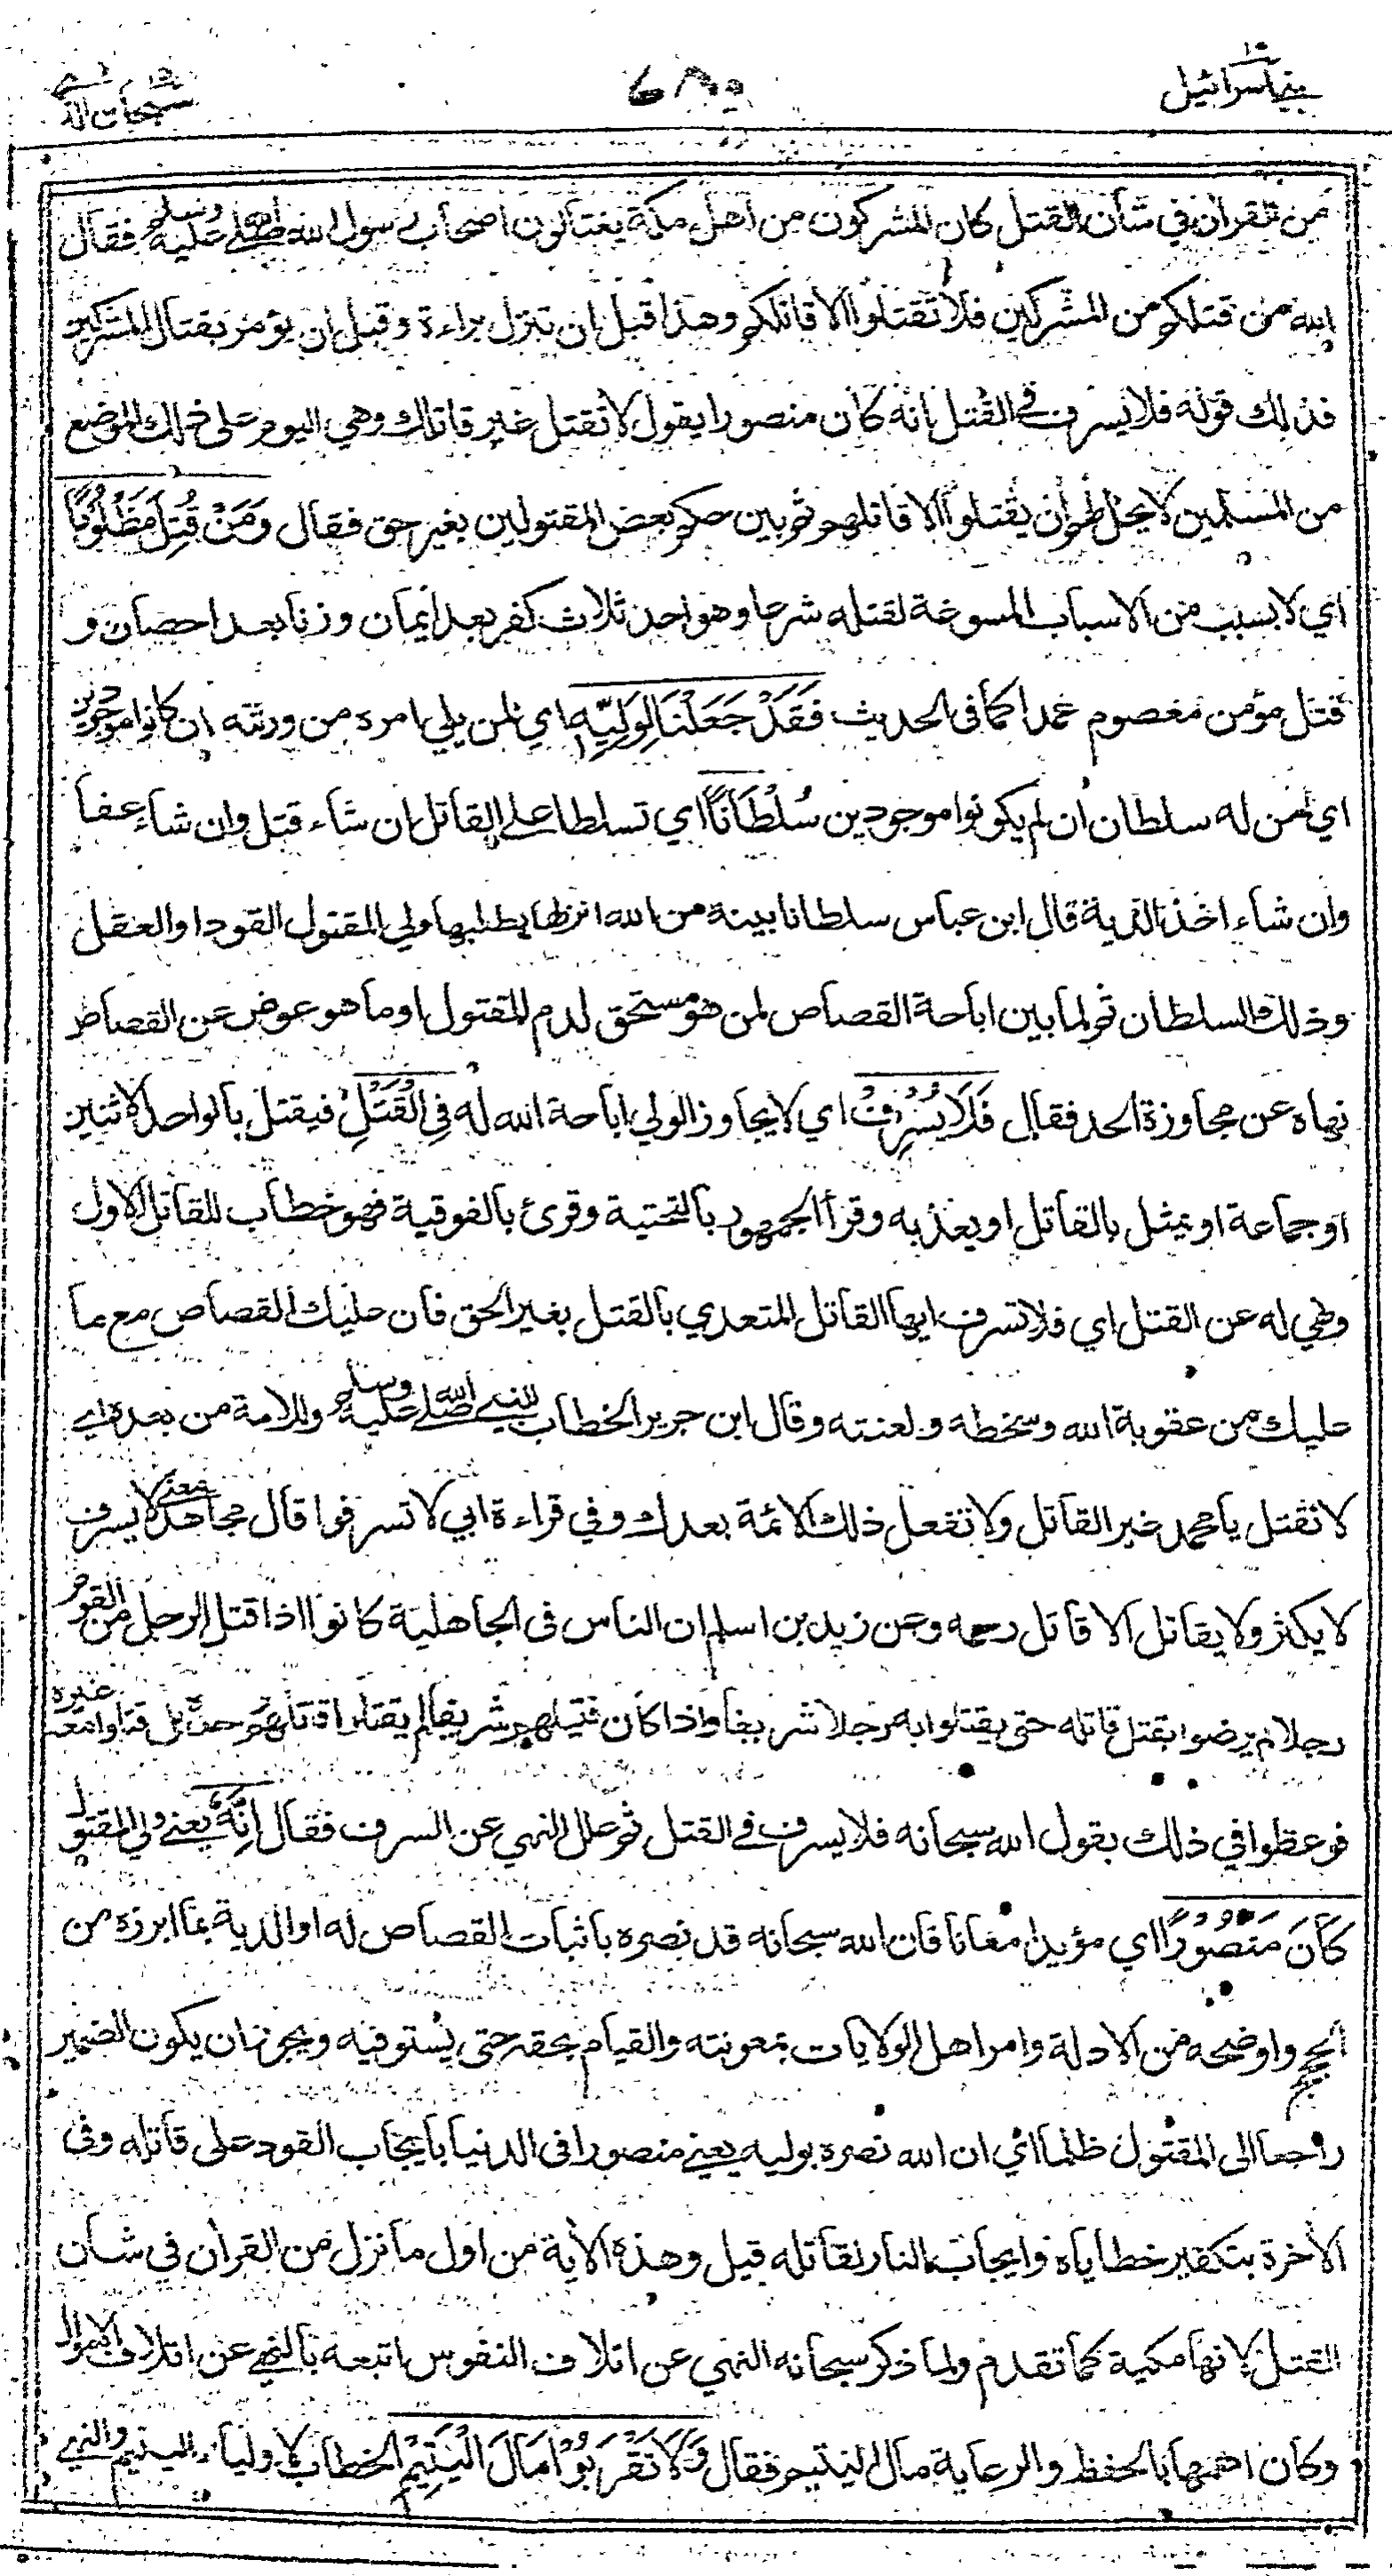 بني اسرائيل
من القران في شأن القتل كان المشركون من اهل مكة يغتالون اصحاب رسول الله صلى الله عليه وسلم فقال
الله من قتلكم من المشركين فلا تقتلوا الا قاتلكم وهذا قبل ان تنزل براءة وقبل ان يؤمر بقتال المشركين
فذلك قوله فلا يسرف في القتل انه كان منصورا يقول لا تقتل غير قاتلك وهي اليوم على ذلك الموضع
من المسلمين لا يحل لهم أن يقتلوا الا قاتلهم ثم بين حكم بعض المقتولين بغير حق فقال وَمَنْ قُتِلَ مَظْلُومًا
اي لا بسبب من الاسباب المسوغة لقتله شرعا وهو احد ثلاث كفر بعد ايمان وزنا بعد احصان و
قتل مؤمن معصوم عمدا كما في الحديث فَقَدْ جَعَلْنَا لِوَلِيِّهِ اي لمن يلي امره من ورثته ان كانوا موجودين
اي لمن له سلطان ان لم يكونوا موجودين سُلْطَانًا اي تسلطا على القاتل ان شاء قتل وان شاء عفا
وان شاء اخذ الدية قال ابن عباس سلطانا بينة من الله انزلها يطلبها ولي المقتول القود او العقل
وذلك السلطان ثم لما بين اباحة القصاص لمن هو مستحق لدم المقتول او ما هو عوض عن القصاص
نهاه عن مجاوزة الحد فقال فَلَا يُسْرِفْ اي لا يجاوز الولي اباحة الله له فِي الْقَتْلِ فيقتل بالواحد الاثنين
او جماعة او يمثل بالقاتل او يعذبه وقرأ الجمهور بالتحتية وقرئ بالفوقية فهو خطاب للقاتل الاول
ونهي له عن القتل اي فلا تسرف ايها القاتل المتعدي بالقتل بغير الحق فان عليك القصاص مع ما
عليك من عقوبة الله وسخطه ولعنته وقال ابن جرير الخطاب للنبي صلى الله عليه وسلم وللامة من بعده اي
لا تقتل يا محمد غير القاتل ولا تفعل ذلك الائمة بعدك وفي قراءة ابي لا تسرفوا قال مجاهد معنى لا يسرف
لا يكثر ولا يقاتل الا قاتل رحمه وعن زيد بن اسلم ان الناس في الجاهلية كانوا اذا قتل الرجل من القوم
رجلا لم يرضوا بقتل قاتله حتى يقتلوا به رجلا شريفا واذا كان قتيلهم شريفا لم يقتلوا قاتلهم وحده بل قتلوا معه غيره
فوعظوا في ذلك بقول الله سبحانه فلا يسرف في القتل ثم علل النهي عن السرف فقال اِنَّهُ يعني ولي المقتول
كَانَ مَنْصُورًا اي مؤيدا معانا فان الله سبحانه قد نصره باثبات القصاص له او الدية بما ابرزه من
الحجج واوضحه من الادلة وامر اهل الولايات بمعونته والقيام بحقه حتى يستوفيه ويجوز ان يكون الضمير
راجعا الى المقتول ظلما اي ان الله نصره بوليه يعني منصورا في الدنيا بايجاب القود على قاتله وفي
الأخرة بتكفير خطاياه وايجاب النار لقاتله قيل وهذه الأية من اول ما نزل من القرأن في شأن
القتل لانها مكية كما تقدم ولما ذكر سبحانه النهي عن اتلاف النفوس اتبعه بالنهي عن اتلاف الاموال
وكان اهمها بالحفظ والرعاية مال اليتيم فقال وَلَا تَقْرَبُوْا مَالَ الْيَتِيْمِ الخطاب لاولياء اليتيم والنهي